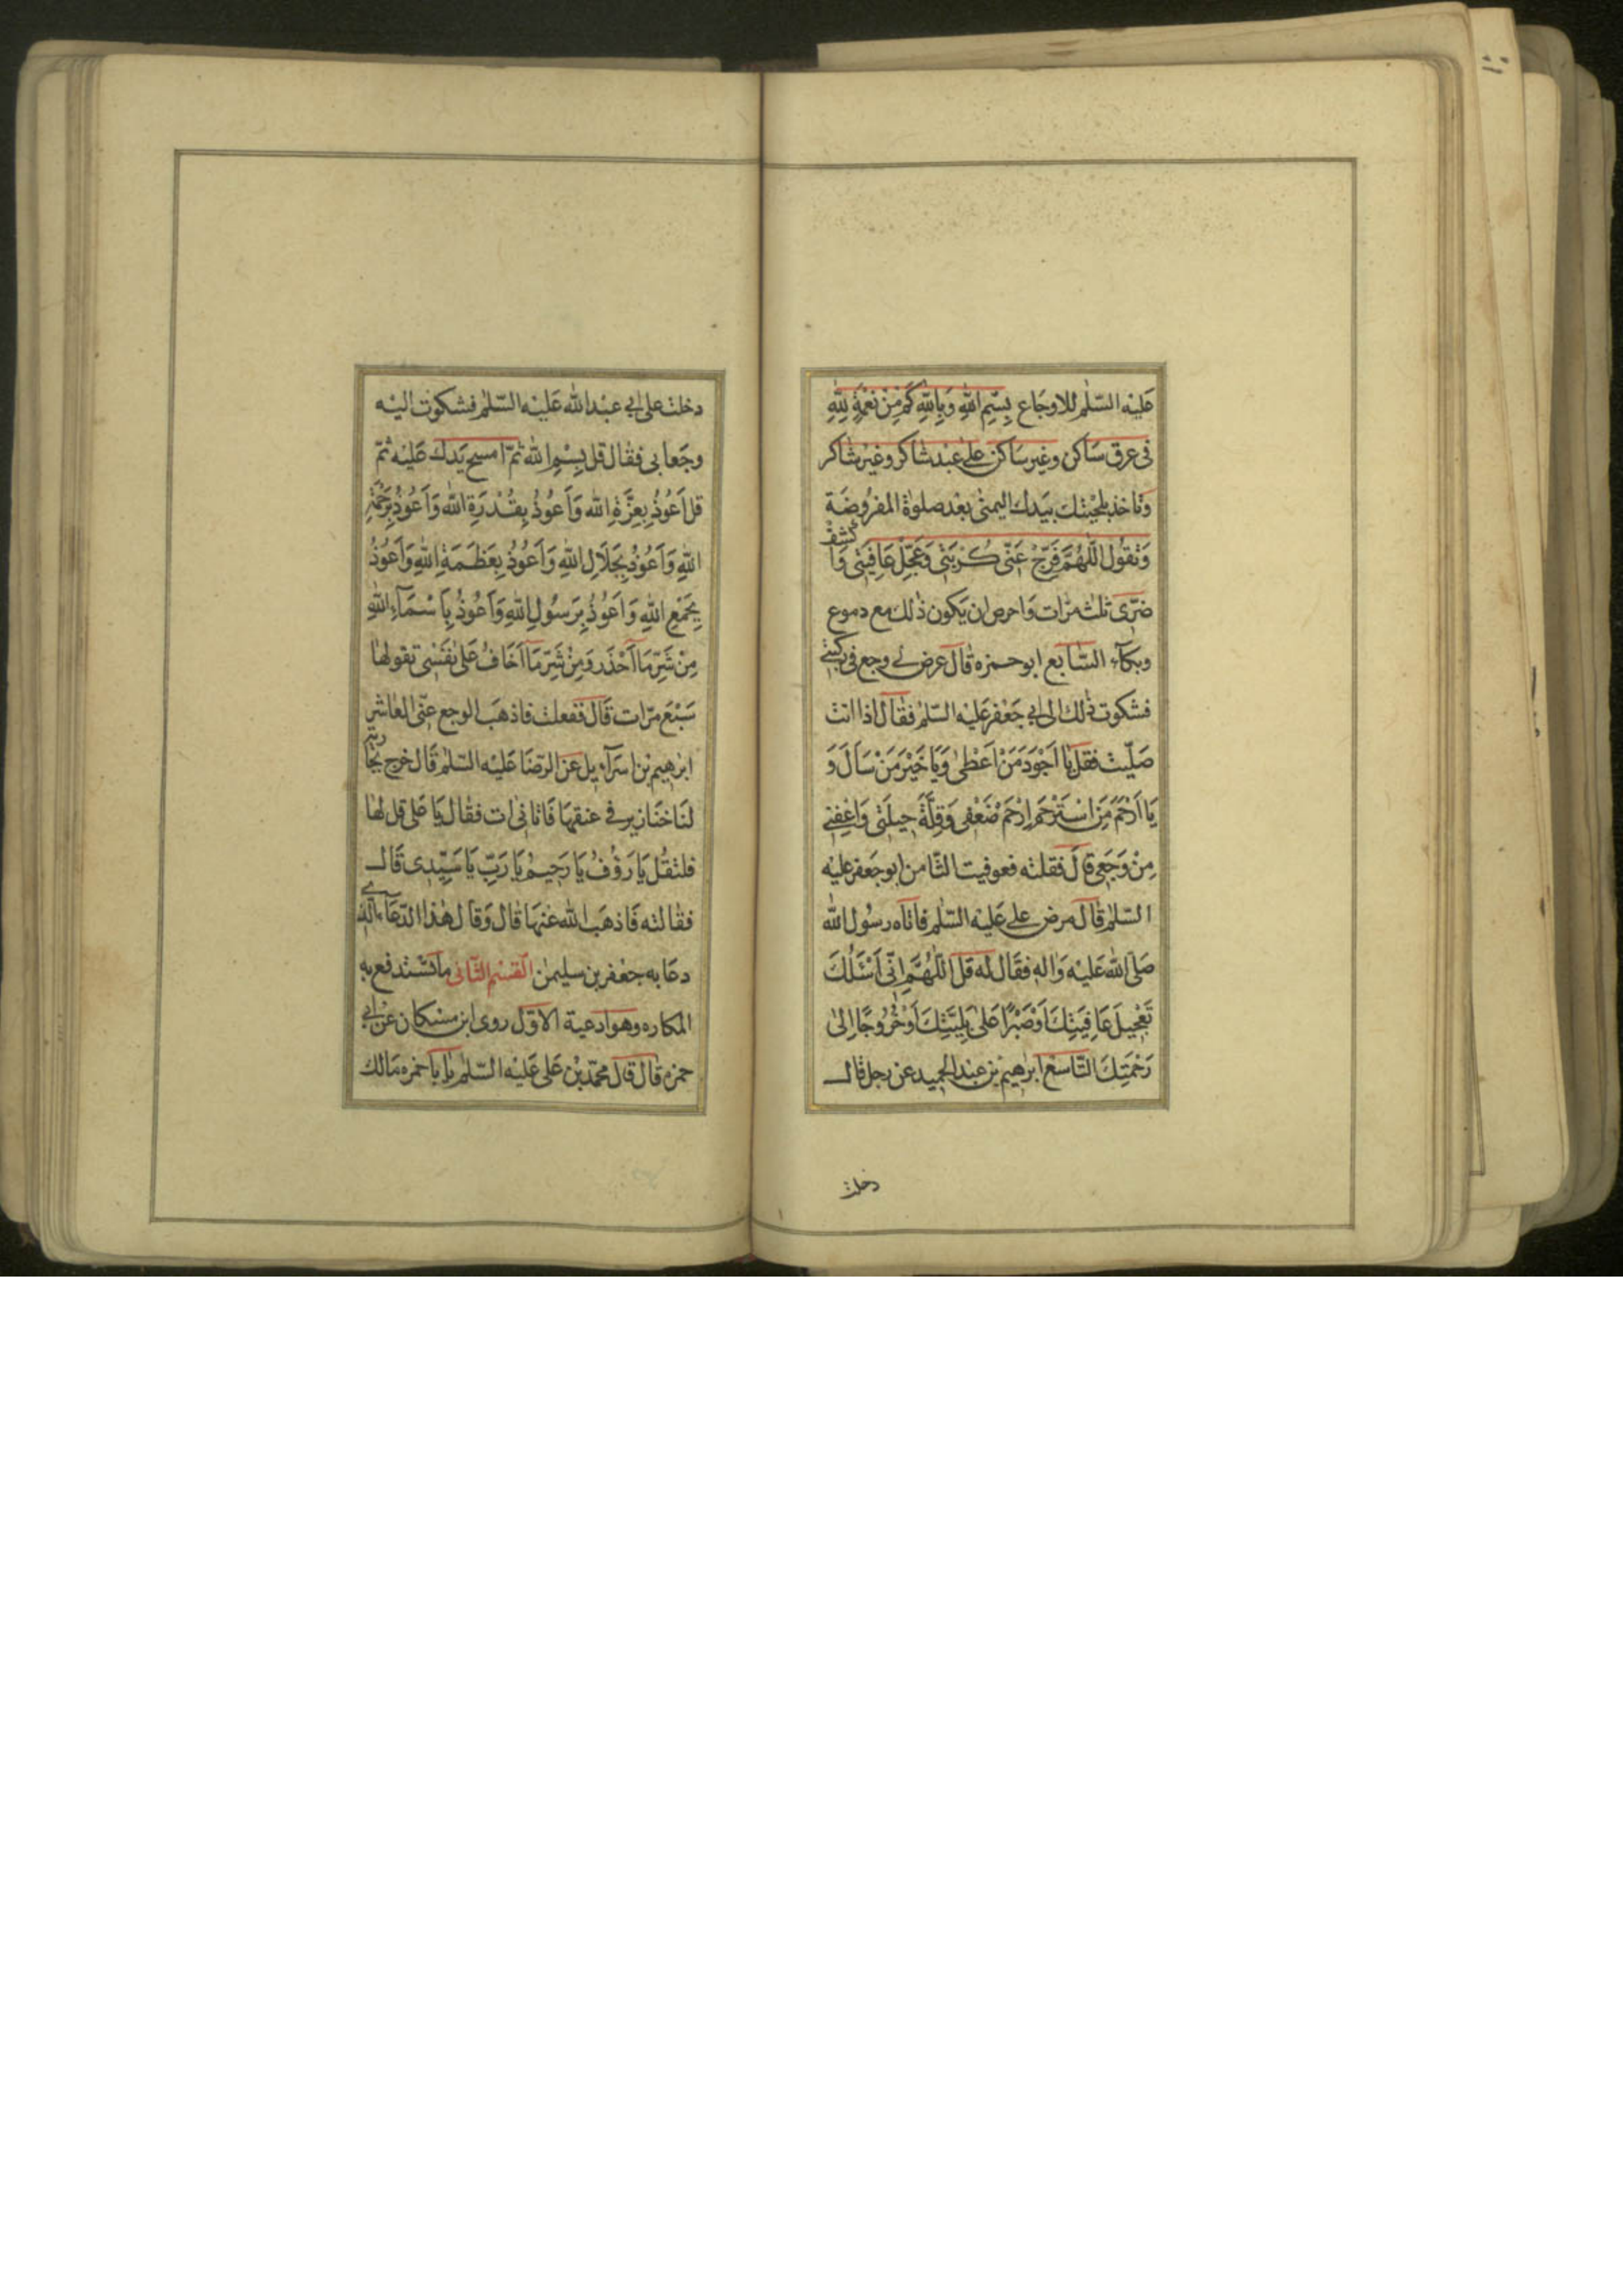 عَلَيْه السّلٰم للاوجَاع بِسْمِ اللّٰهِ وَبِاللّٰهِ كَمْ مِنْ نِعْمَةٍ لِلّٰهِ
فى عرق سَاكن وغير سَاكن على عَبْد شاكر وغيْر شاكر
وَتاخذ بلحيتك بيَدك اليمنٰى بعْد صلوٰة المفرُوضَة
وَتقوُل اللّٰهُمَّ فَرِّجْ عَنّى كُرْبَتى وَعَجِّلْ عَافِيَتى وَاكْشِفْ
ضرّى ثلث مرّات وَاحرص ان يَكون ذٰلك مع دموع
وبكآء السّابع ابوحمزه قال عرض لى وجع فى ركبتى
فشكوت ذٰلك الى ابى جَعْفر عَليْه السّلٰم فقال اذا انت
صَلّيت فقل يٰا اَجْوَدَ مَنْ اَعْطٰى وَيَا خَيْرَ مَنْ سَاَلَ وَ
يَا اَرْحَمَ مَنْ اسْتُرْحِمَ اِرْحَمْ ضَعْفِى وَقِلَّةَ حِيلَتى وَاعْفِنى
مِنْ وَجَعِى قالَ فقلته فعوفيت الثّامن ابو جَعفر عليْه
السّلٰم قالَ مرض على عَليْه السّلٰم فاتاه رسُول اللّٰه
صَلى اللّٰه عَليْه وَاله فقال لَه قل اللّٰهُمَّ اِنّى اَسْئَلُكَ
تَعْجِيلَ عَافِيَتِكَ اَوْصَبْرًا عَلىٰ بَلِيَّتِكَ اَوْخُرُوجًا اِلىٰ
رَحْمَتِكَ التّاسعْ ابرٰهيم بْن عبْد الحميد عن رجل قال
دخلت
دخلت على ابى عبْد اللّٰه عَليْه السّلٰم فشكوت اليْه
وجَعا بى فقال قل بِسْمِ اللّٰه ثمّ امسح يَدك عَليْه ثمّ
قل اَعُوذُ بِعِزَّةِ اللّٰه وَاَعُوذُ بِقُدْرَةِ اللّٰه وَاَعُوذُ بِرَحْمَةِ
اللّٰهِ وَاَعُوذُ بِجَلَالِ اللّٰهِ وَاَعُوذُ بِعَظَمَةِ اللّٰهِ وَاَعُوذُ
بِجَمْعِ اللّٰهِ وَاَعُوذُ بِرَسُولِ اللّٰهِ وَاَعُوذُ بِاَسْمَآءِ اللّٰهِ
مِنْ شَرِّ مَا اَحْذَر وَمِنْ شَرِّ مَا اَخَافُ عَلىٰ نَفْسى تقولها
سَبْعَ مرّات قَال ففعلت فاذهبَ الوجع عنّى العٰاشر
ابرٰهيم بْن اسرآءيل عن الرّضَا عَليْه السّلٰم قَال خرج بجاريَة
لنَا خنَازير فى عنقهَا فَاتانى ات فقال يَا عَلى قل لها
فلتقُل يَا رَؤُفُ يَا رَحِيمُ يَا رَبِّ يَا سَيِّدِى قَال
فقالته فَاذهبَ اللّٰه عَنهَا قال وَقال هٰذا الدّعَاء الّذى
دعَا به جعْفر بن سليمٰن القسْم الثّانى مَا تسْتدفع به
المكاره وهو ادعية الاوّل روى ابن مسْكان عنْ ابى
حمزه قال قال محمّد بْن عَلى عَليْه السّلٰم يا ابَا حمزه مَا لك